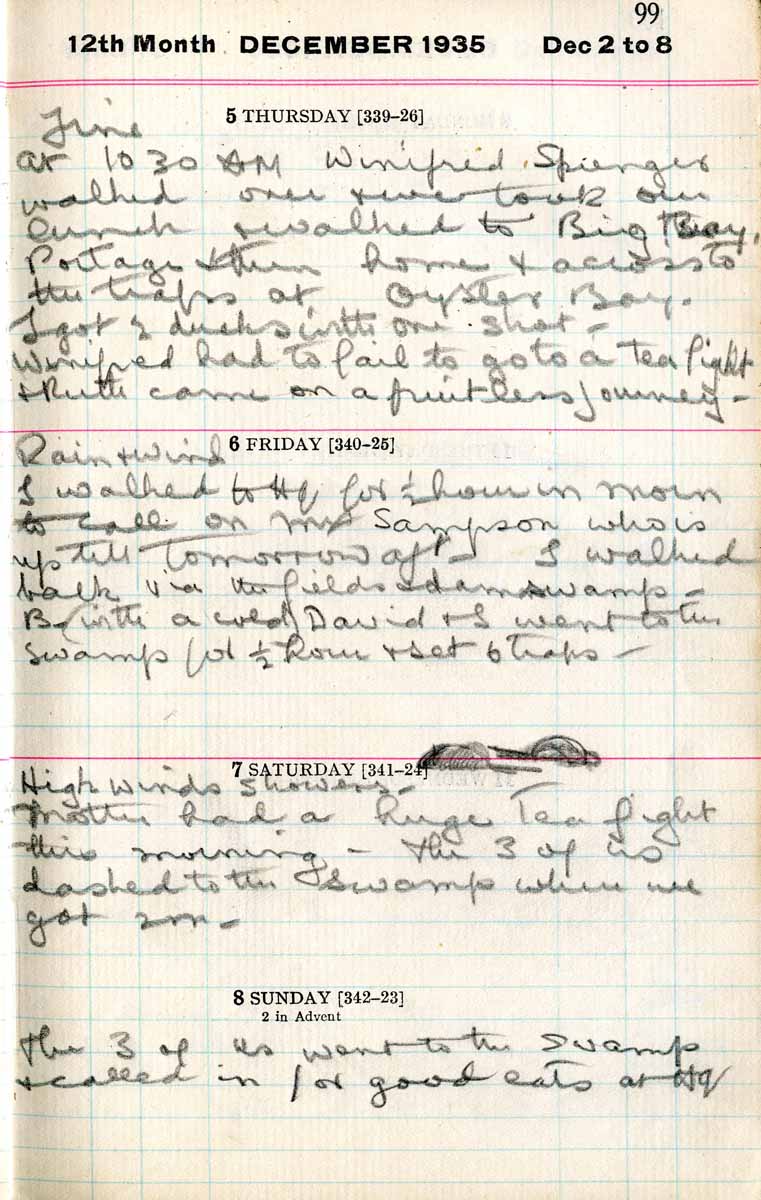 99
12th Month DECEMBER 1935 Dec 2 to 8
5 THURSDAY [339–26]
Fine
at 10 30 AM Winifred Spenger
walked over & we took our
lunch & walked to Big Bay,
Portage & then home & across to
the traps at Oyster Bay.
I got 2 ducks with one shot –
Winifred had to fail to go to a Tea fight
& Ruth came on a fruitless journey –
6 FRIDAY [340–25]
Rain & Wind
I walked to Hq for ½ hour in morn
to call on Mrs Sampson who is
up till tomorrow aft – I walked
back via the fields & dam swamp –
B– (with a cold) David & I went to the
swamp for ½ hour & set 6 traps –
7 SATURDAY [341–24]
High winds showers –
Mother had a huge Tea fight
this morning – the 3 of us
dashed to the Swamp where we
got 2 m –
8 SUNDAY [342–23]
2 in Advent
the 3 of us went to the Swamp
& called in for good eats at Hq